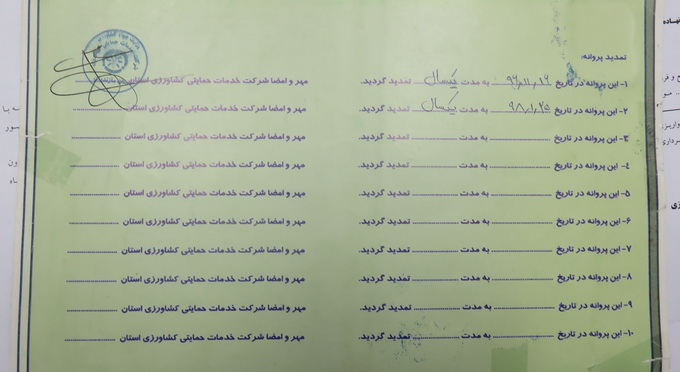 تمدید پروانه:
۱- این پروانه در تاریخ ۹۶.۱۱.۱۶ به مدت یکسال تمدید گردید. مهر و امضا شرکت خدمات حمایتی کشاورزی استان
۲- این پروانه در تاریخ ۹۸.۱.۲۵ به مدت یکسال تمدید گردید. مهر و امضا شرکت خدمات حمایتی کشاورزی استان
۳- این پروانه در تاریخ ........ به مدت ........ تمدید گردید. مهر و امضا شرکت خدمات حمایتی کشاورزی استان ........
۴- این پروانه در تاریخ ........ به مدت ........ تمدید گردید. مهر و امضا شرکت خدمات حمایتی کشاورزی استان ........
۵- این پروانه در تاریخ ........ به مدت ........ تمدید گردید. مهر و امضا شرکت خدمات حمایتی کشاورزی استان ........
۶- این پروانه در تاریخ ........ به مدت ........ تمدید گردید. مهر و امضا شرکت خدمات حمایتی کشاورزی استان ........
۷- این پروانه در تاریخ ........ به مدت ........ تمدید گردید. مهر و امضا شرکت خدمات حمایتی کشاورزی استان ........
۸- این پروانه در تاریخ ........ به مدت ........ تمدید گردید. مهر و امضا شرکت خدمات حمایتی کشاورزی استان ........
۹- این پروانه در تاریخ ........ به مدت ........ تمدید گردید. مهر و امضا شرکت خدمات حمایتی کشاورزی استان ........
۱۰- این پروانه در تاریخ ........ به مدت ........ تمدید گردید. مهر و امضا شرکت خدمات حمایتی کشاورزی استان ........